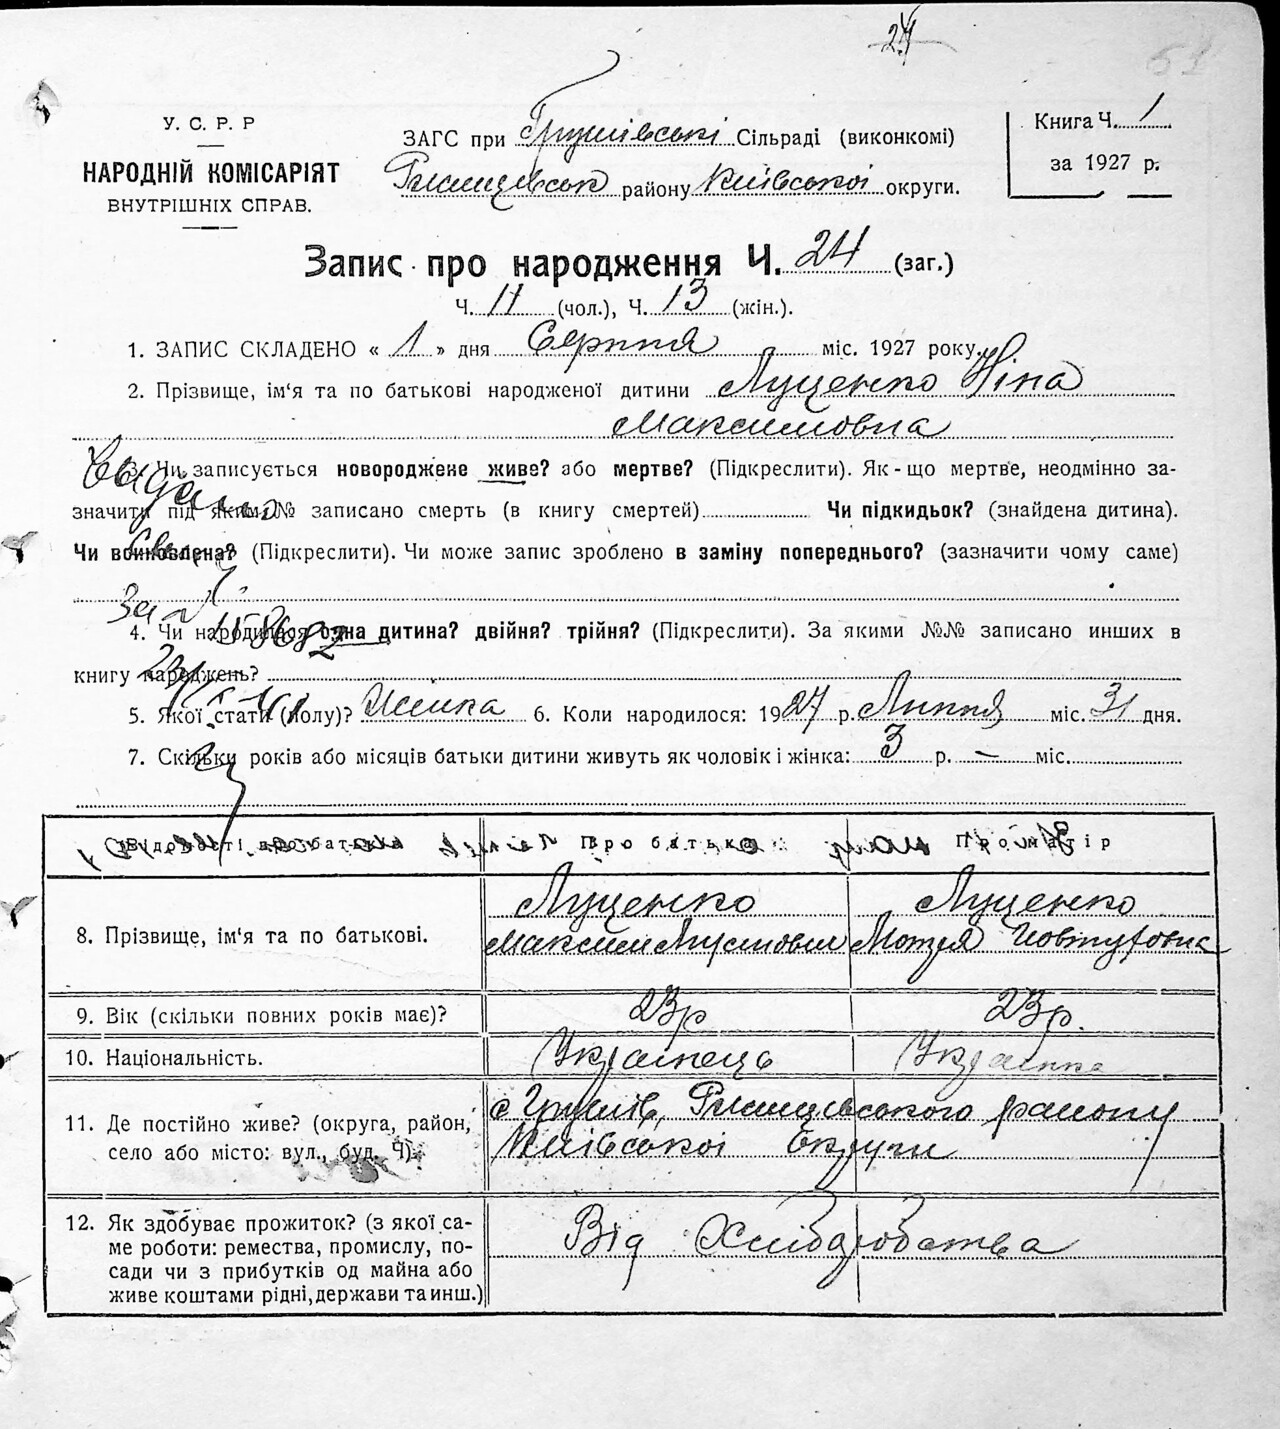 24
61
У. С. Р. Р
НАРОДНІЙ КОМІСАРІЯТ
ВНУТРІШНІХ СПРАВ.
ЗАГС при Грушівські Сільраді (виконкомі)
Ржищевськ району Київської округи.
Книга Ч. 1
за 1927 р.
Запис про народження Ч. 24 (заг.)
Ч. 11 (чол.), Ч. 13 (жін.).
1. ЗАПИС СКЛАДЕНО « 1 » дня Серпня міс. 1927 року.
2. Прізвище, ім'я та по батькові народженої дитини Луценко Ніна
Максимовна
3. Чи записується новороджене живе? або мертве? (Підкреслити). Як-що мертве, неодмінно за-
значити під яким № записано смерть (в книгу смертей) Чи підкидьок? (знайдена дитина).
Чи войновлена? (Підкреслити). Чи може запис зроблено в заміну попереднього? (зазначити чому саме)
4. Чи народилася одна дитина? двійня? трійня? (Підкреслити). За якими №№ записано инших в
книгу народжень?
5. Якої стати (полу)? Жінка 6. Коли народилося: 1927 р. Липня міс. 31 дня.
7. Скільки років або місяців батьки дитини живуть як чоловік і жінка: 3 р. — міс.
Видано
За №
Відомості про батьків Про батька Про матір
8. Прізвище, ім'я та по батькові. Луценко Луценко
Максим Мотря Йовтуховна
9. Вік (скільки повних років має)? 23р 23р.
10. Національність. Українець Українка
11. Де постійно живе? (округа, район, с Грушів, Ржищевського району
село або місто: вул., буд. Ч). Київської Округи
12. Як здобуває прожиток? (з якої са- Від Хліборобства
ме роботи: ремества, промислу, по-
сади чи з прибутків од майна або
живе коштами рідні, держави та инш.)